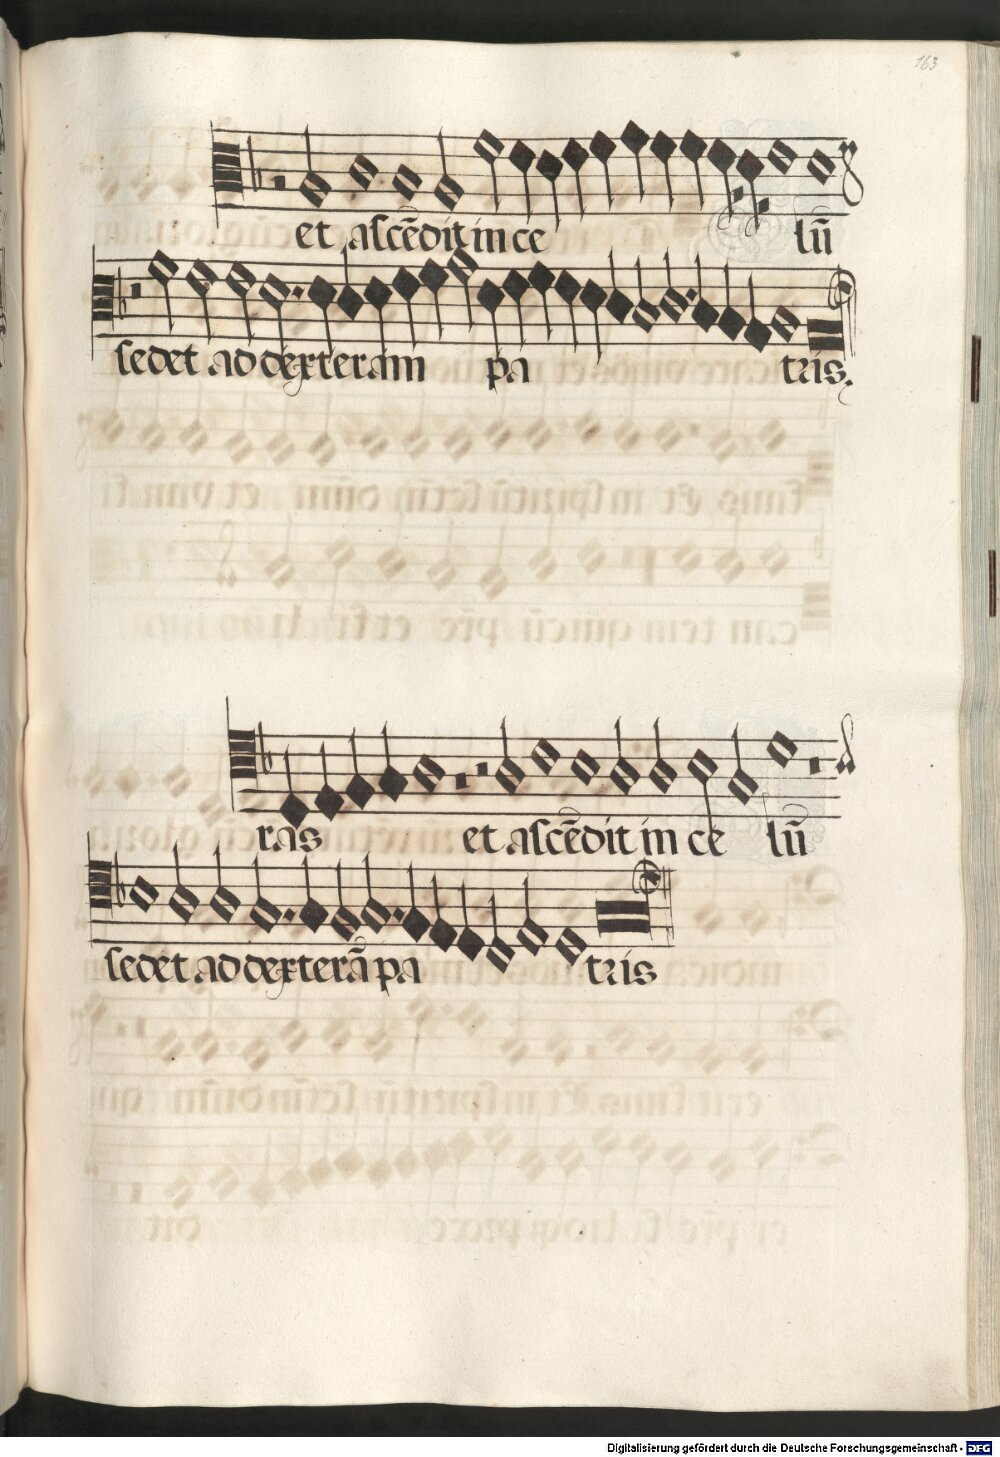 163
et ascēdit in ce lū
sedet ad dexteram pa tris.
ras et ascēdit in ce lū
sedet ad dexterā pa tris
Digitalisierung gefördert durch die Deutsche Forschungsgemeinschaft - DFG